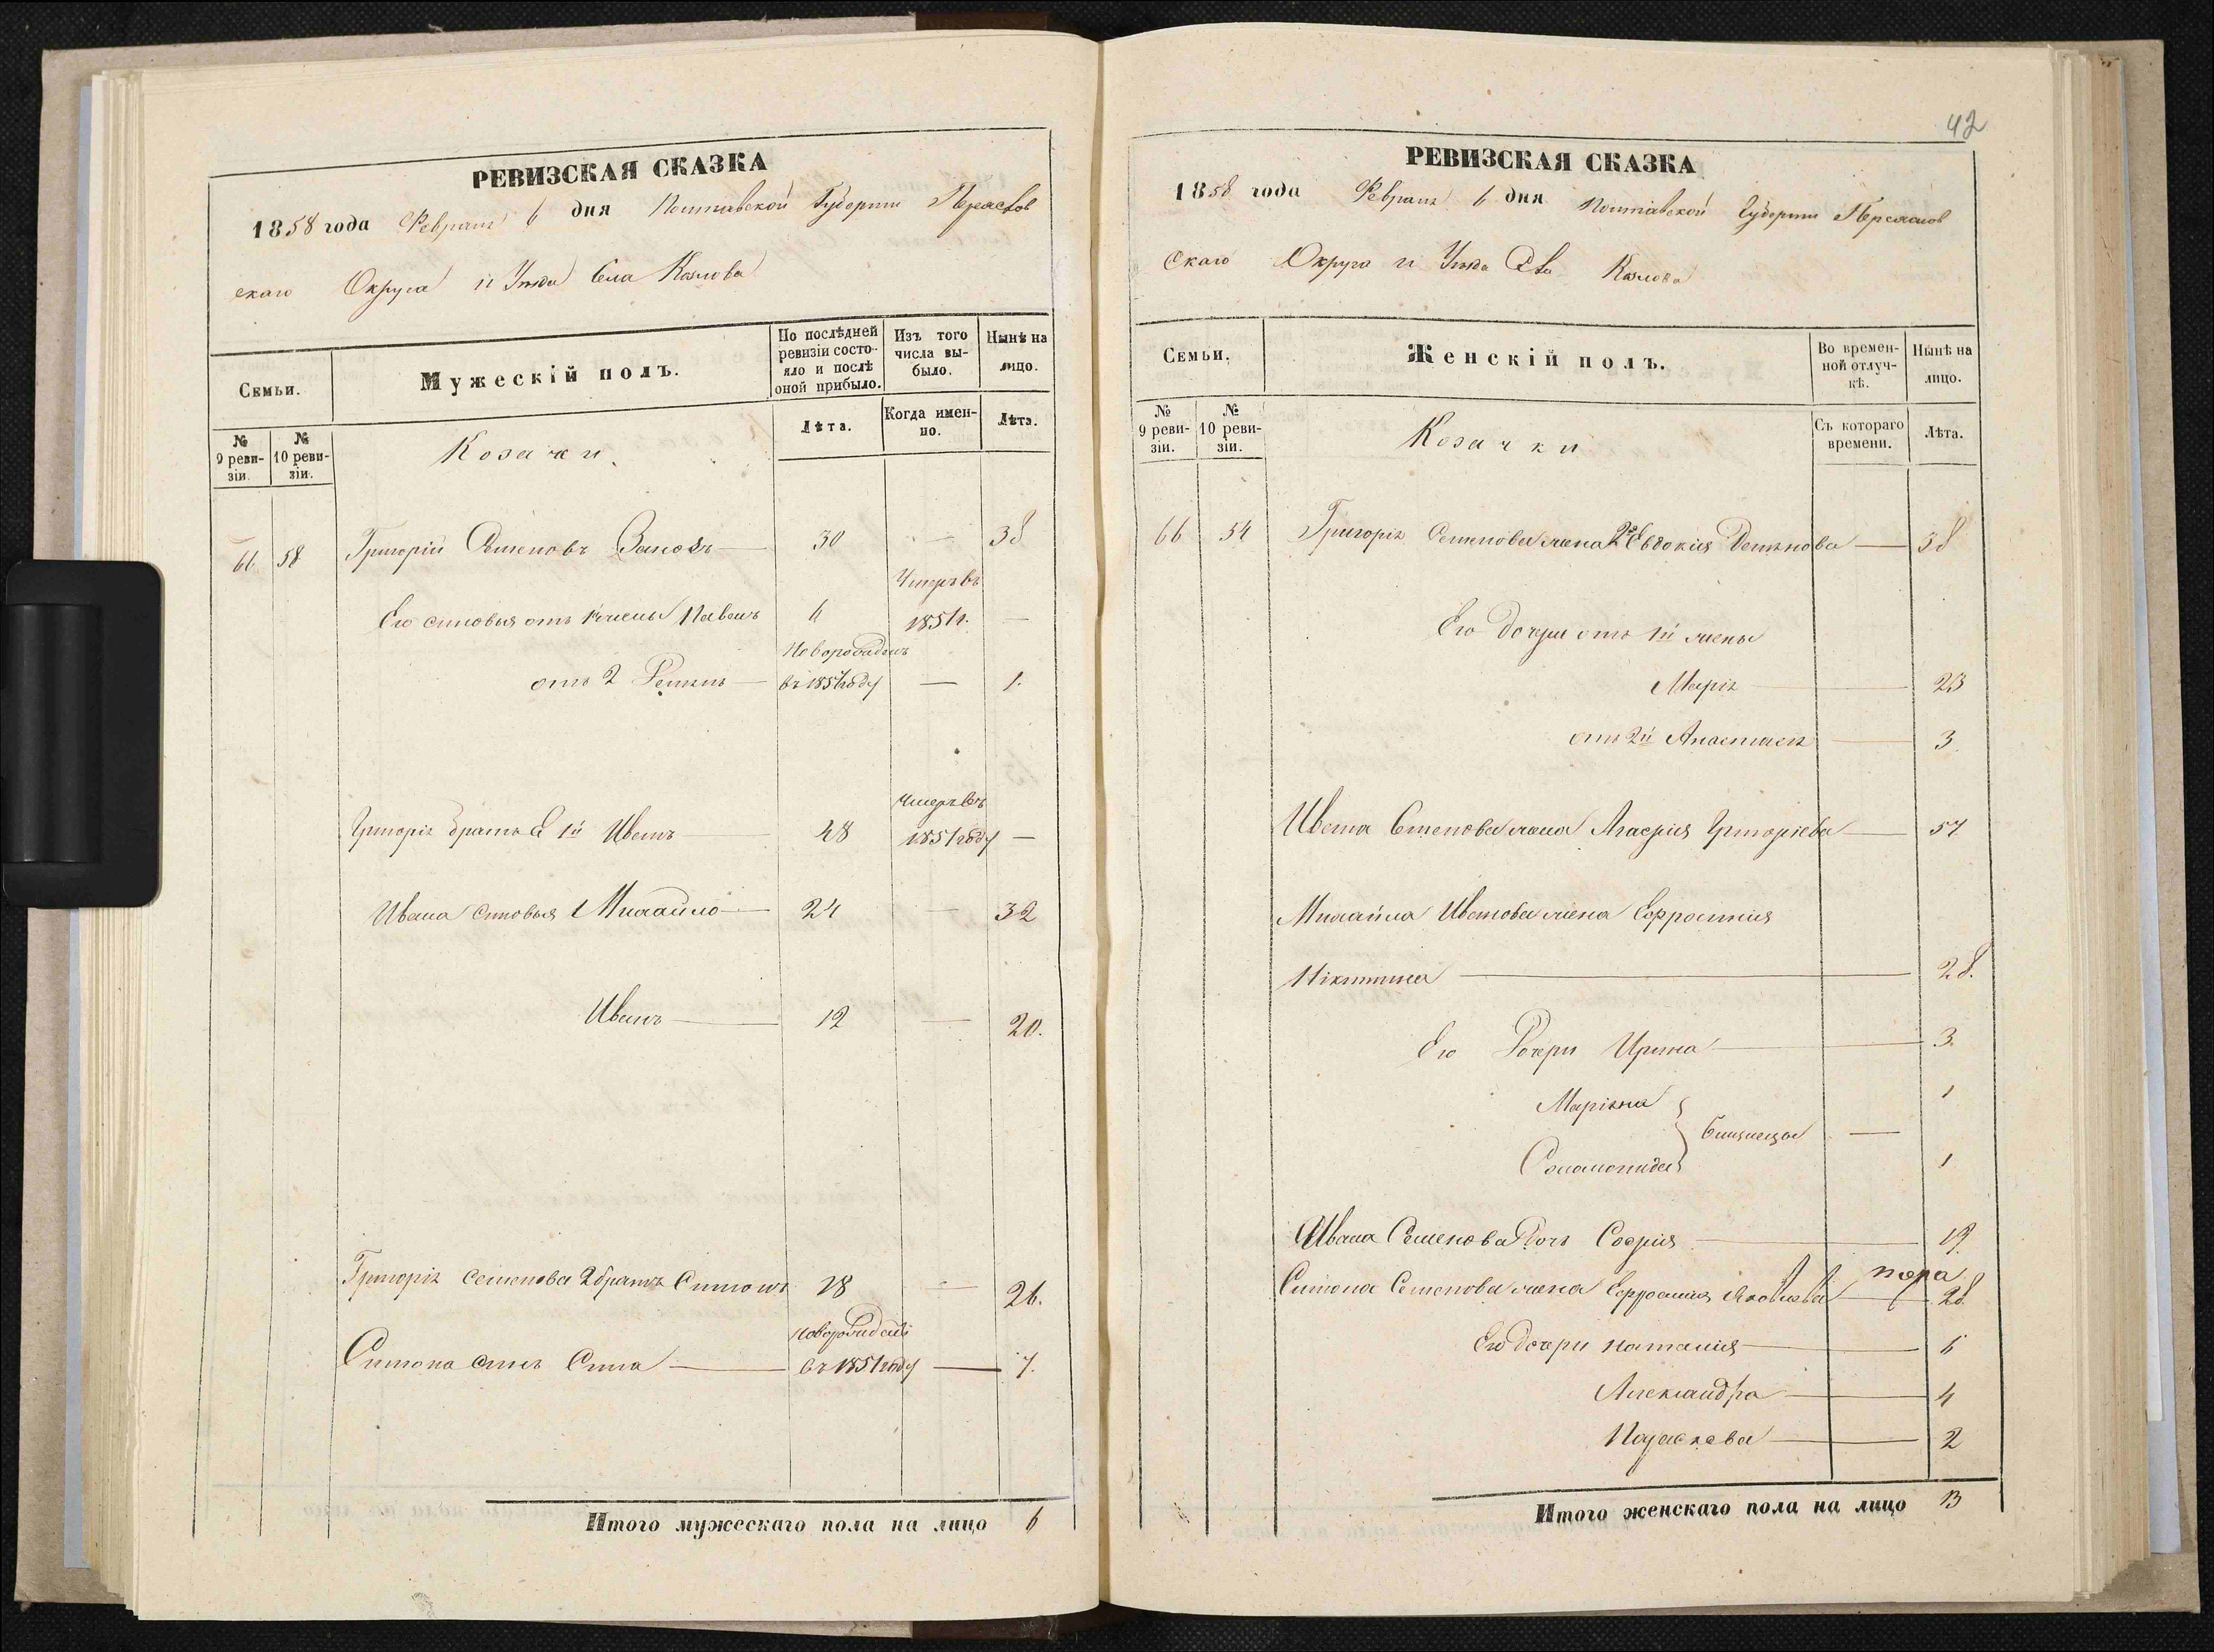 РЕВИЗСКАЯ СКАЗКА
1858 года Февраля 6 дня Полтавской Губернии Переяслов
скаго Округа и Уезда Села Козлова
Семьи.
Мужескій полъ.
По послѣдней ревизіи состояло и послѣ оной прибыло.
Изъ того числа выбыло.
Нынѣ на лицо.
№ 9 ревизіи.
№ 10 ревизіи.
Козаки
Лѣта.
Когда именно.
Лѣта.
66 58 Григорій Семеновъ 30 — 38
Умеръ въ
Его сыновья отъ 1 жены Павелъ 1851 г. —
Новорожденъ
отъ 2 въ 1857 году — 1.
Умеръ въ
Григорія братья 1й Иванъ 48 1851 году —
Ивана сыновья Михайло 24 — 32
Иванъ 12 — 20.
Григорія Семенова 2 братъ Симонъ 18 — 26.
Новорожденъ
Симона сынъ въ 1851 году — 7.
Итого мужескаго пола на лицо 6
42
РЕВИЗСКАЯ СКАЗКА
1858 года Февраля 6 дня Полтавской Губерніи Переяслов
скаго Округа и Уезда Села Козлова
Семьи.
Женскій полъ.
Во временной отлучкѣ.
Нынѣ на лицо.
№ 9 ревизіи.
№ 10 ревизіи.
Козачки
Съ котораго времени.
Лѣта.
66 54 Григорія Семенова жена 2я Евдокія 38
Его дочери отъ 1й жены
Марія 23
отъ 2й Анастасія 3
Ивана Семенова жена Агафія Григоріева 57
Михайла Иванова жена Ефросинія
Нікитина 28.
Его Дочери Ирина 3.
Маріяна 1
близнецы —
Соломонида 1
Ивана Семенова Дочь Софія 19
Симона Семенова жена Ефросинія Яковлева 28
Его дочери Наталія 6
Александра 4
Параскева 2
Итого женскаго пола на лицо 13